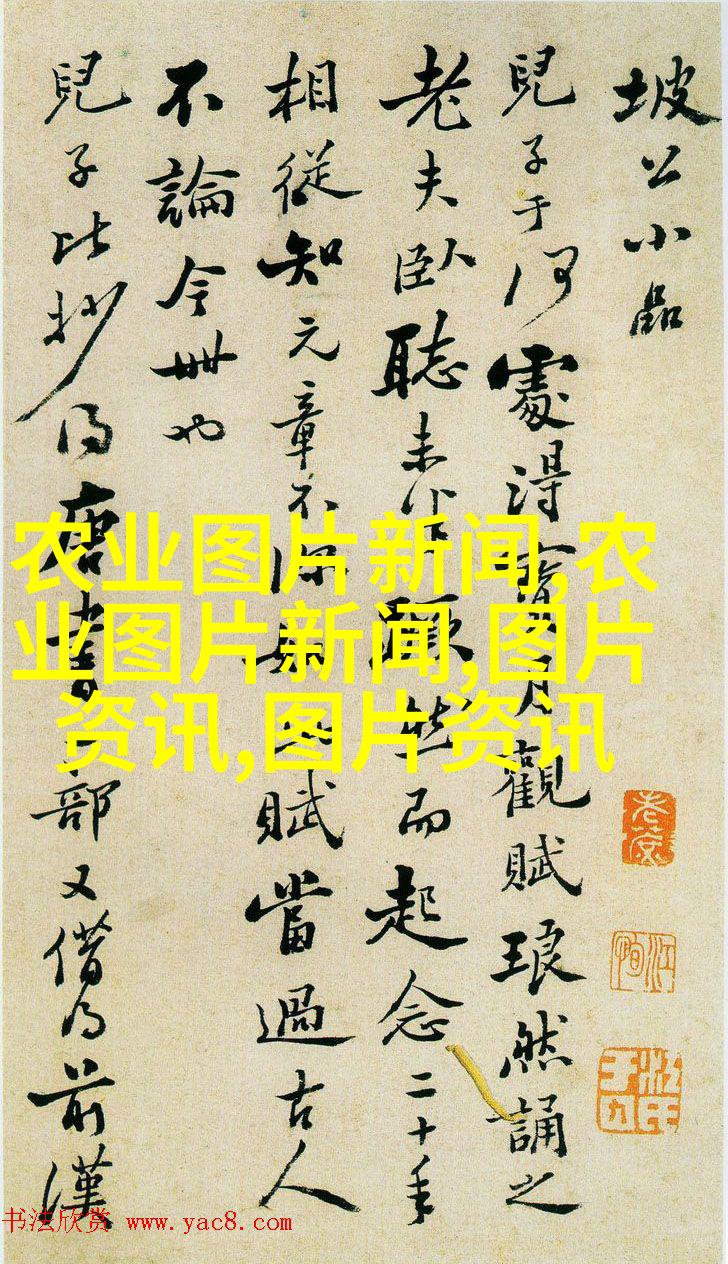 坡公小品
兒子于何處得寶月觀賦琅然誦之
老夫臥聽未半然而起念二十年
相從知元章不賦當過古人
不論今世也
兒子比抄得唐書一部又借得前漢
农业图片新闻,农
业图片新闻,图片
资讯,图片资讯
书法欣赏 www.yac8.com